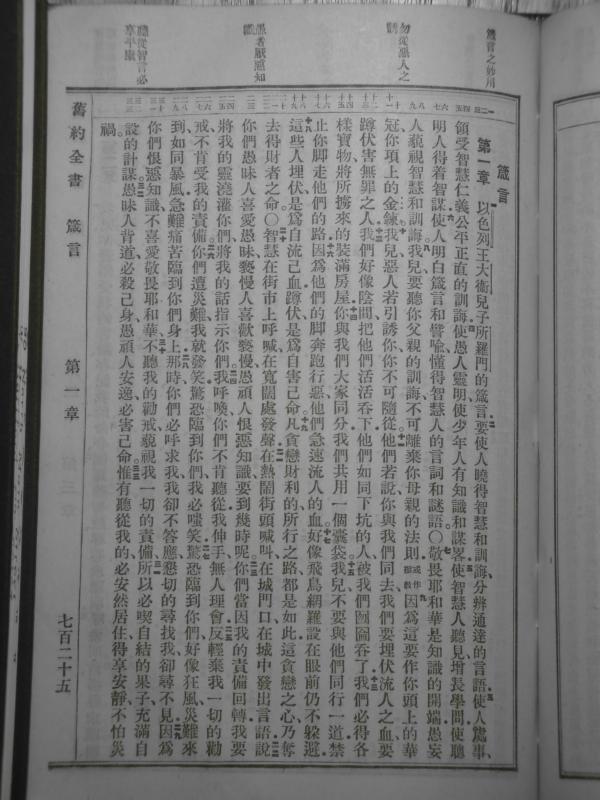 箴言之妙用
勿從惡人之誘
愚者厭惡知識
聽從智言必享平康
箴言
第一章 以色列王大衞兒子所羅門的箴言、要使人曉得智慧和訓誨、分辨通達的言語、使人處事、
領受智慧仁義公平正直的訓誨、使愚人靈明、使少年人有知識和謀畧、使智慧人聽見增長學問、使聰
明人得着智謀、使人明白箴言和譬喻、懂得智慧人的言詞和謎語○敬畏耶和華是知識的開端、愚妄
人藐視智慧和訓誨、我兒、要聽你父親的訓誨、不可離棄你母親的法則、因爲這要作你頭上的華
冠、你項上的金鍊、我兒、惡人若引誘你、你不可隨從、他們若說、你與我們同去、我們要埋伏流人之血、要
蹲伏害無罪之人、我們好像陰間、把他們活活吞下、他們如同下坑的人、被我們囫圇吞了、我們必得各
樣寶物、將所擄來的裝滿房屋、你與我們大家同分、我們共用一個囊袋、我兒、不要與他們同行一道、禁
止你脚走他們的路、因爲他們的脚奔跑行惡、他們急速流人的血、好像飛鳥網羅設在眼前仍不躱避、
這些人埋伏是爲自流己血、蹲伏是爲自害己命、凡貪戀財利的、所行之路都是如此、這貪戀之心乃奪
去得財者之命○智慧在街市上呼喊、在寬闊處發聲、在熱鬧街頭喊叫、在城門口、在城中發出言語、說、
你們愚昧人喜愛愚昧、褻慢人喜歡褻慢、愚頑人恨惡知識、要到幾時呢、你們當因我的責備回轉、我要
將我的靈澆灌你們、將我的話指示你們、我呼喚你們不肯聽從、我伸手無人理會、反輕棄我一切的勸
戒、不肯受我的責備、你們遭災難、我就發笑、驚恐臨到你們、我必嗤笑、驚恐臨到你們好像狂風、災難來
到如同暴風、急難痛苦臨到你們身上、那時你們必呼求我、我卻不答應、懇切的尋找我、卻尋不見、因爲
你們恨惡知識、不喜愛敬畏耶和華、不聽我的勸戒、藐視我一切的責備、所以必喫自結的果子、充滿自
設的計謀、愚昧人背道、必殺己身、愚頑人安逸、必害己命、惟有聽從我的、必安然居住、得享安靜、不怕災
禍。
舊約全書 箴言 第一章 七百二十五